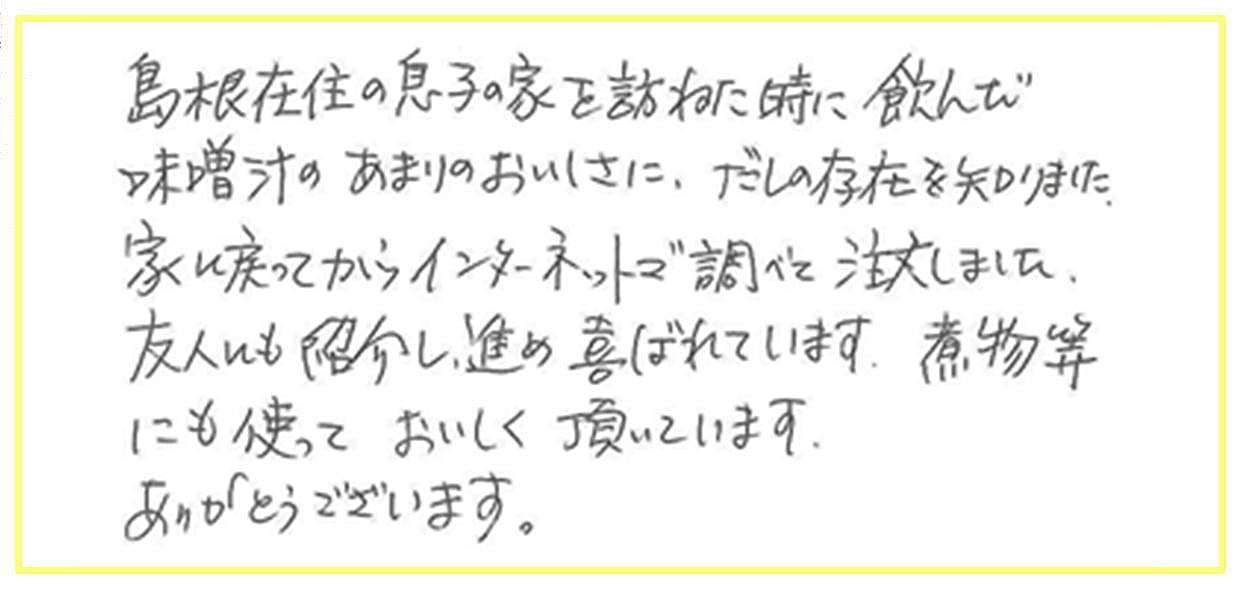 島根在住の息子の家を訪ねた時に飲んだ
味噌汁のあまりのおいしさに、だしの存在を知りました。
家に戻ってからインターネットで調べて注文しました。
友人にも紹介し、進め喜ばれています。煮物等
にも使っておいしく頂いています。
ありがとうございます。